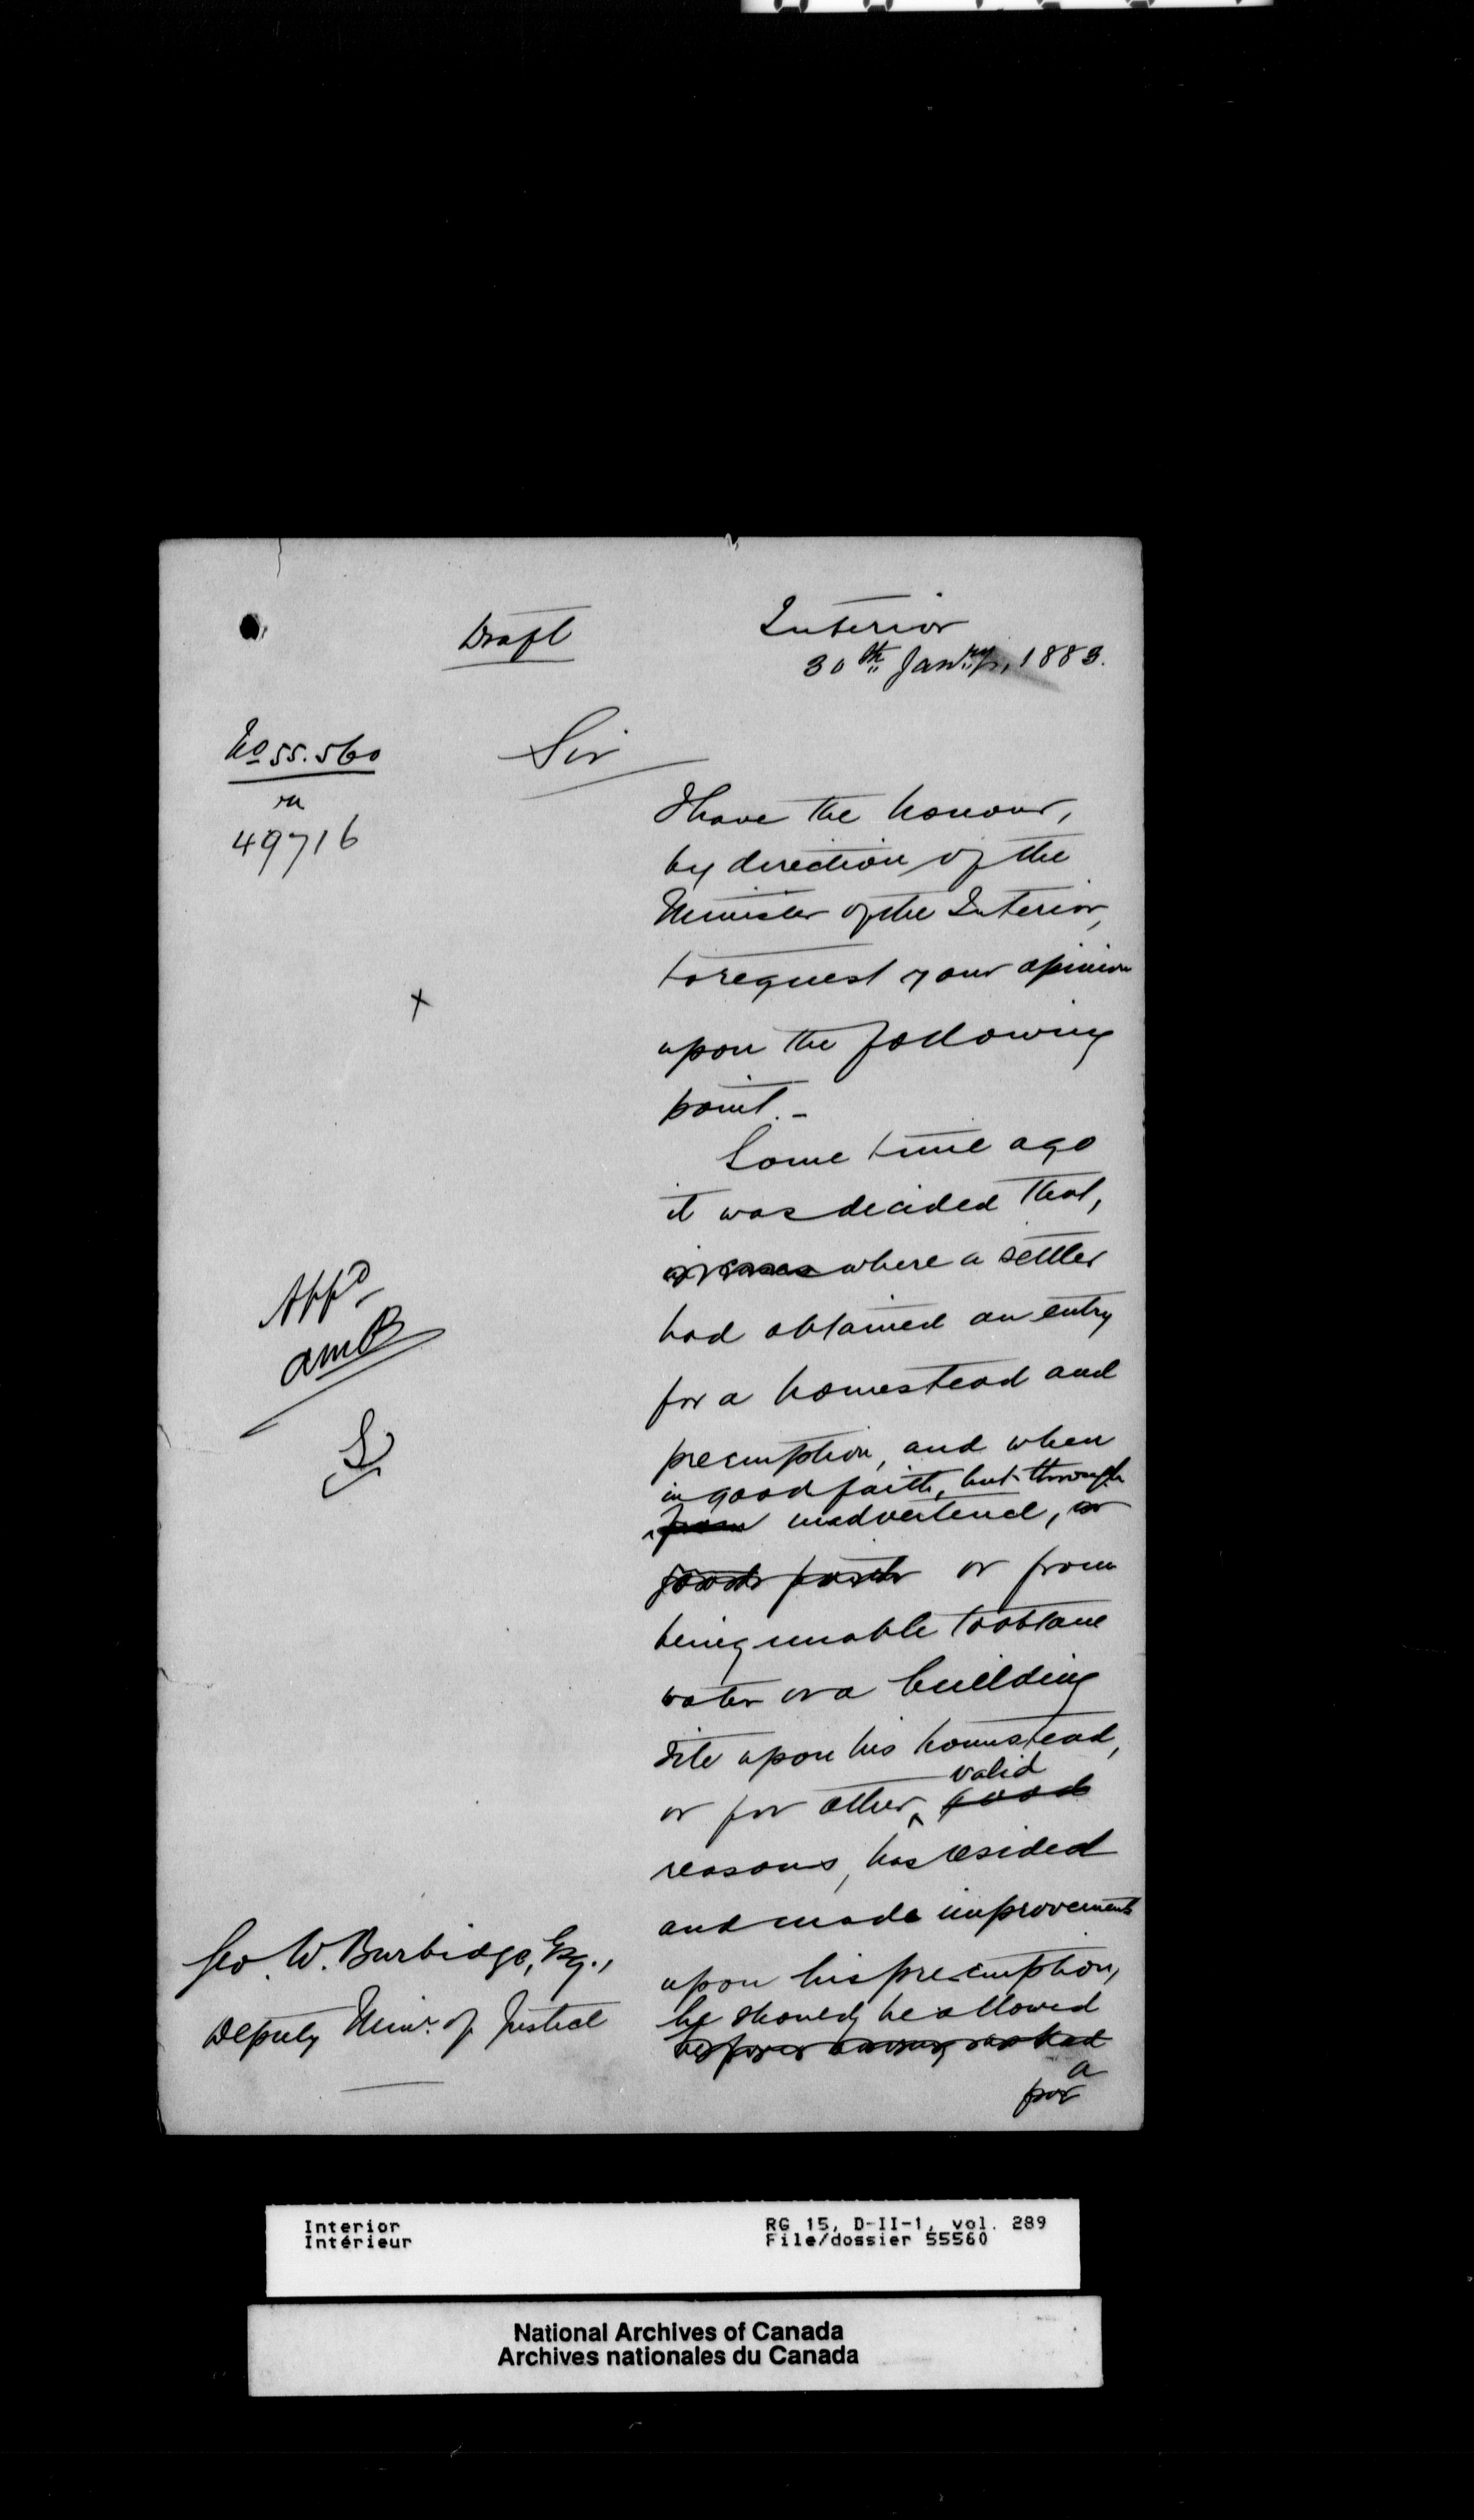 Draft
Interior
30th Janry, 1883.
No 55.560
on
49716
Sir
I have the honour,
by direction of the
Minister of the Interior,
to request your opinion
upon the following
point. -
Some time ago
it was decided that,
where a settler
had obtained an entry
for a homestead and
preemption, and when
in good faith, but through
from inadvertence, or
good faith or from
being unable to obtain
water or a building
site upon his homestead,
valid
or for other good
reasons, has resided
and made improvements
upon his preemption,
he should be allowed
a
for
App'd
AMB
Geo. W. Burbidge, Esq.,
Deputy Minr. of Justice
Interior
Intérieur
RG 15, D-II-1, vol. 289
File/dossier 55560
National Archives of Canada
Archives nationales du Canada